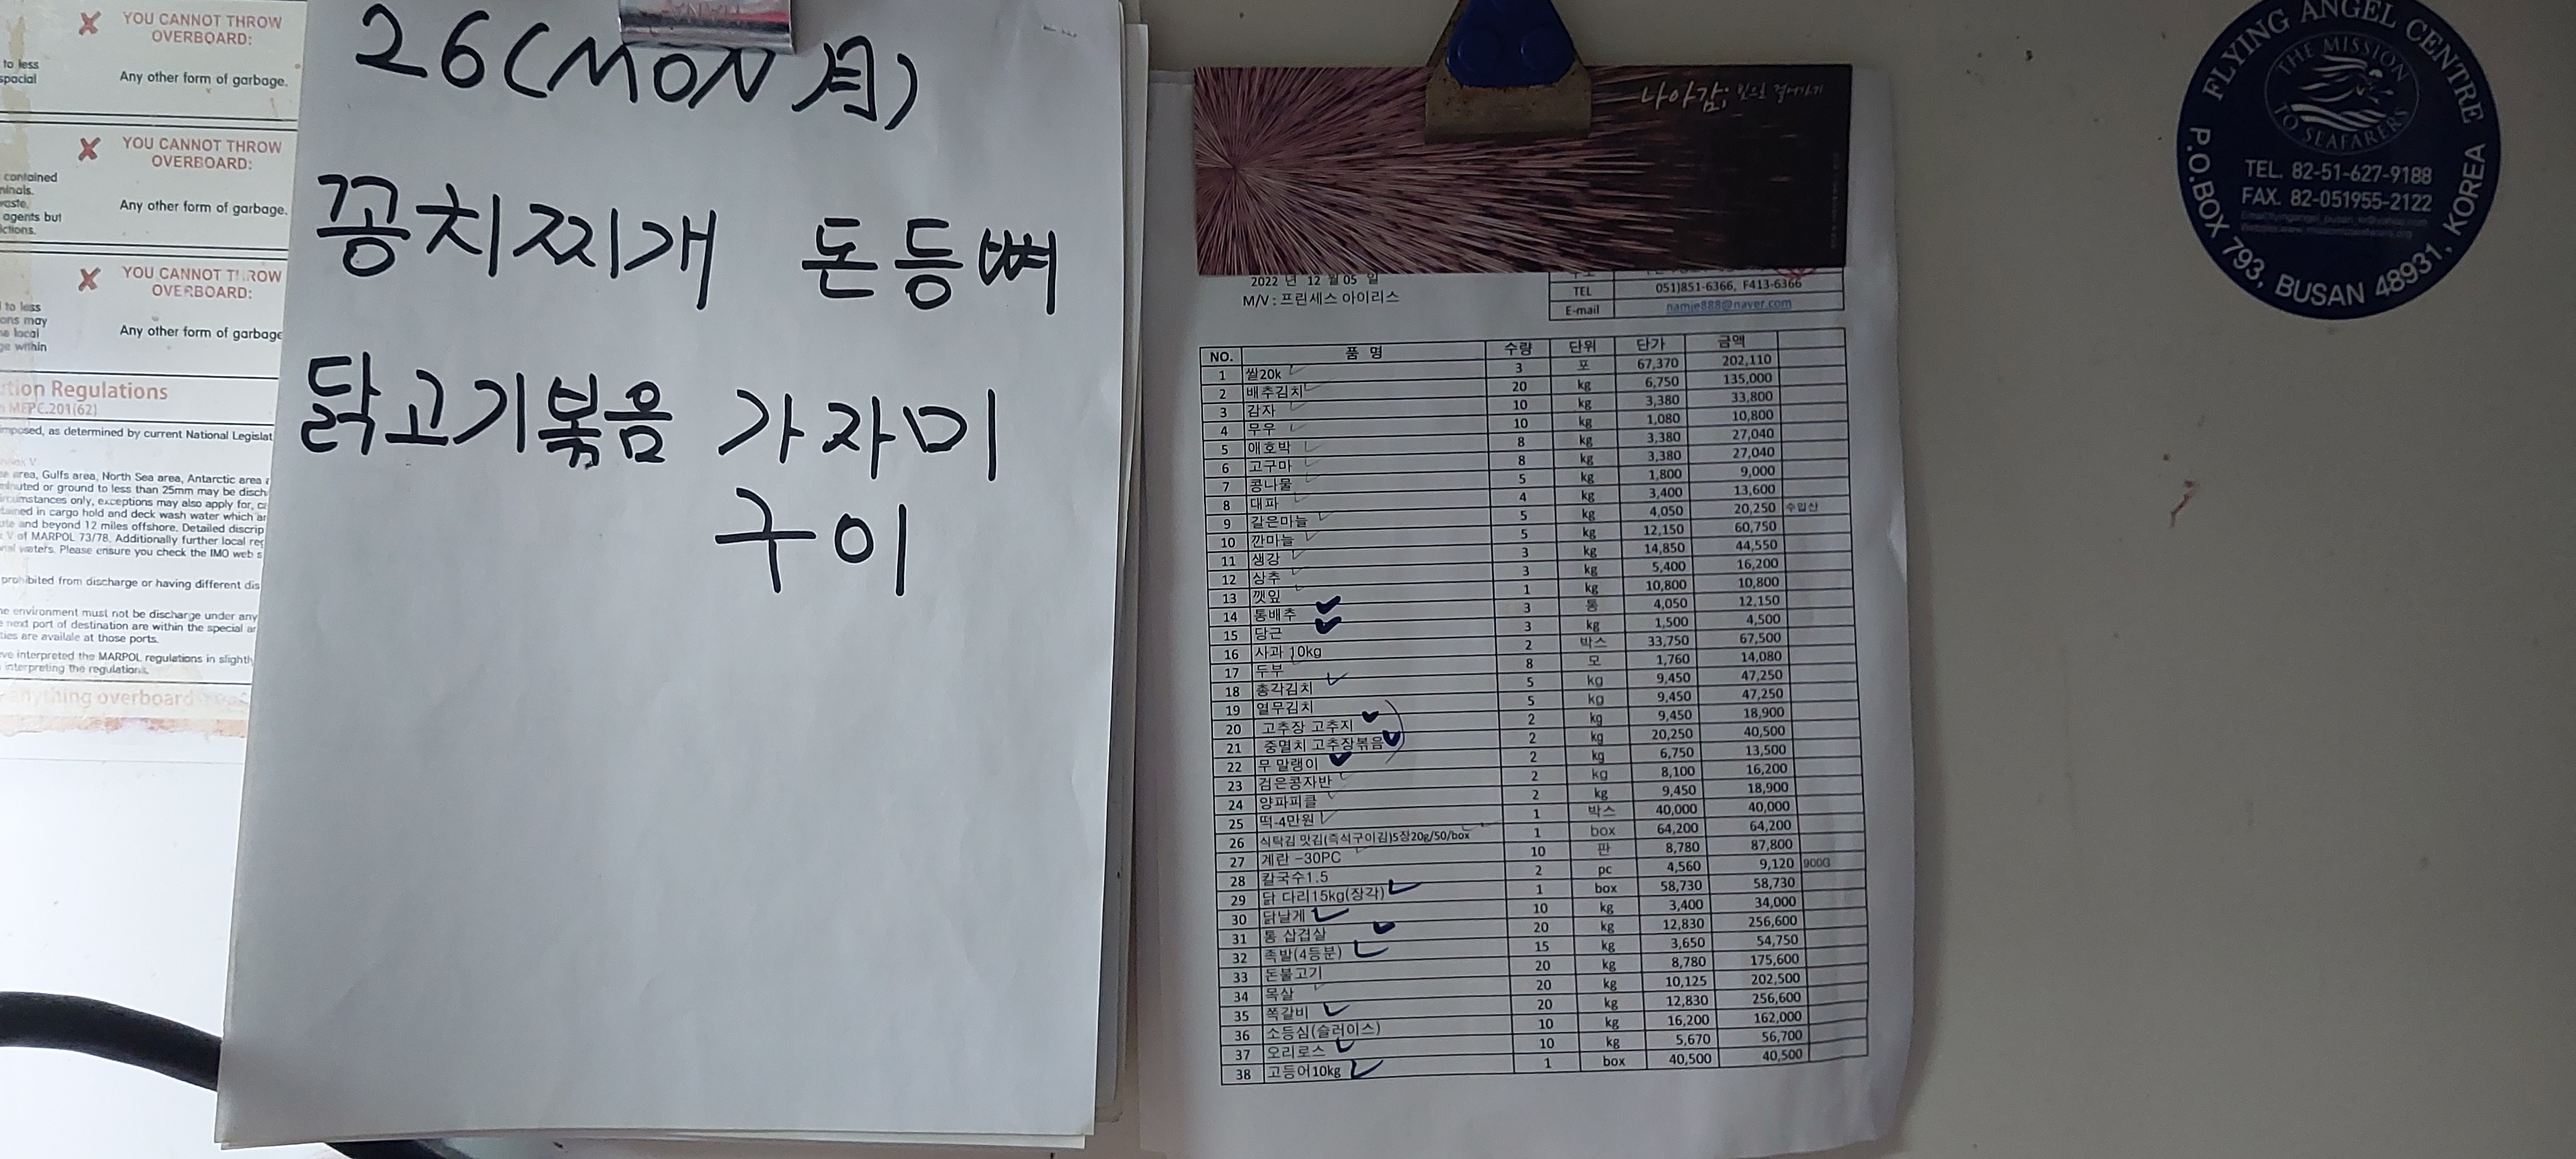 YOU CANNOT THROW
OVERBOARD:
to less
Any other form of garbage.
YOU CANNOT THROW
OVERBOARD:
contained
agents but
Any other form of garbage.
YOU CANNOT THROW
OVERBOARD:
to less
ons may
local
within
Any other form of garbage
Regulations
MEPC.201(62)
imposed, as determined by current National Legislat
area, Gulfs area, North Sea area, Antarctic area
or ground to less than 25mm may be disch
only, exceptions may also apply for,
in cargo hold and deck wash water which
and beyond 12 miles offshore. Detailed
V of MARPOL 73/78. Additionally further local
waters. Please ensure you check the IMO web s
prohibited from discharge or having different dis
environment must not be discharge under any
next port of destination are within the special
are availale at those ports.
interpreted the MARPOL regulations in slightly
interpreting the regulations.
anything overboard
26(MON 月)
꽁치찌개 돈등뼈
닭고기볶음 가자미
구이
나아감; 빛으로 걸어가기
2022 년 12 월 05 일
M/V : 프린세스 아이리스
TEL 051)851-6366, F413-6366
E-mail namje888@naver.com
NO. 품 명 수량 단위 단가 금액
1 쌀20k 3 포 67,370 202,110
2 배추김치 20 kg 6,750 135,000
3 감자 10 kg 3,380 33,800
4 무우 10 kg 1,080 10,800
5 애호박 8 kg 3,380 27,040
6 고구마 8 kg 3,380 27,040
7 콩나물 5 kg 1,800 9,000
8 대파 4 kg 3,400 13,600
9 갈은마늘 5 kg 4,050 20,250 수입산
10 깐마늘 5 kg 12,150 60,750
11 생강 3 kg 14,850 44,550
12 상추 3 kg 5,400 16,200
13 깻잎 1 kg 10,800 10,800
14 통배추 3 통 4,050 12,150
15 당근 3 kg 1,500 4,500
16 사과 10kg 2 박스 33,750 67,500
17 두부 8 모 1,760 14,080
18 총각김치 5 kg 9,450 47,250
19 열무김치 5 kg 9,450 47,250
20 고추장 고추지 2 kg 9,450 18,900
21 중멸치 고추장볶음 2 kg 20,250 40,500
22 무 말랭이 2 kg 6,750 13,500
23 검은콩자반 2 kg 8,100 16,200
24 양파피클 2 kg 9,450 18,900
25 떡-4만원 1 박스 40,000 40,000
26 식탁김 맛김(즉석구이김)5장20g/50/box 1 box 64,200 64,200
27 계란 -30PC 10 판 8,780 87,800
28 칼국수1.5 2 pc 4,560 9,120 900G
29 닭 다리15kg(장각) 1 box 58,730 58,730
30 닭날게 10 kg 3,400 34,000
31 통 삽겁살 20 kg 12,830 256,600
32 족발(4등분) 15 kg 3,650 54,750
33 돈불고기 20 kg 8,780 175,600
34 목살 20 kg 10,125 202,500
35 쪽갈비 20 kg 12,830 256,600
36 소등심(슬러이스) 10 kg 16,200 162,000
37 오리로스 10 kg 5,670 56,700
38 고등어10kg 1 box 40,500 40,500
FLYING ANGEL CENTRE
THE MISSION
TO SEAFARERS
TEL. 82-51-627-9188
FAX. 82-051955-2122
P.O.BOX 793, BUSAN 48931, KOREA